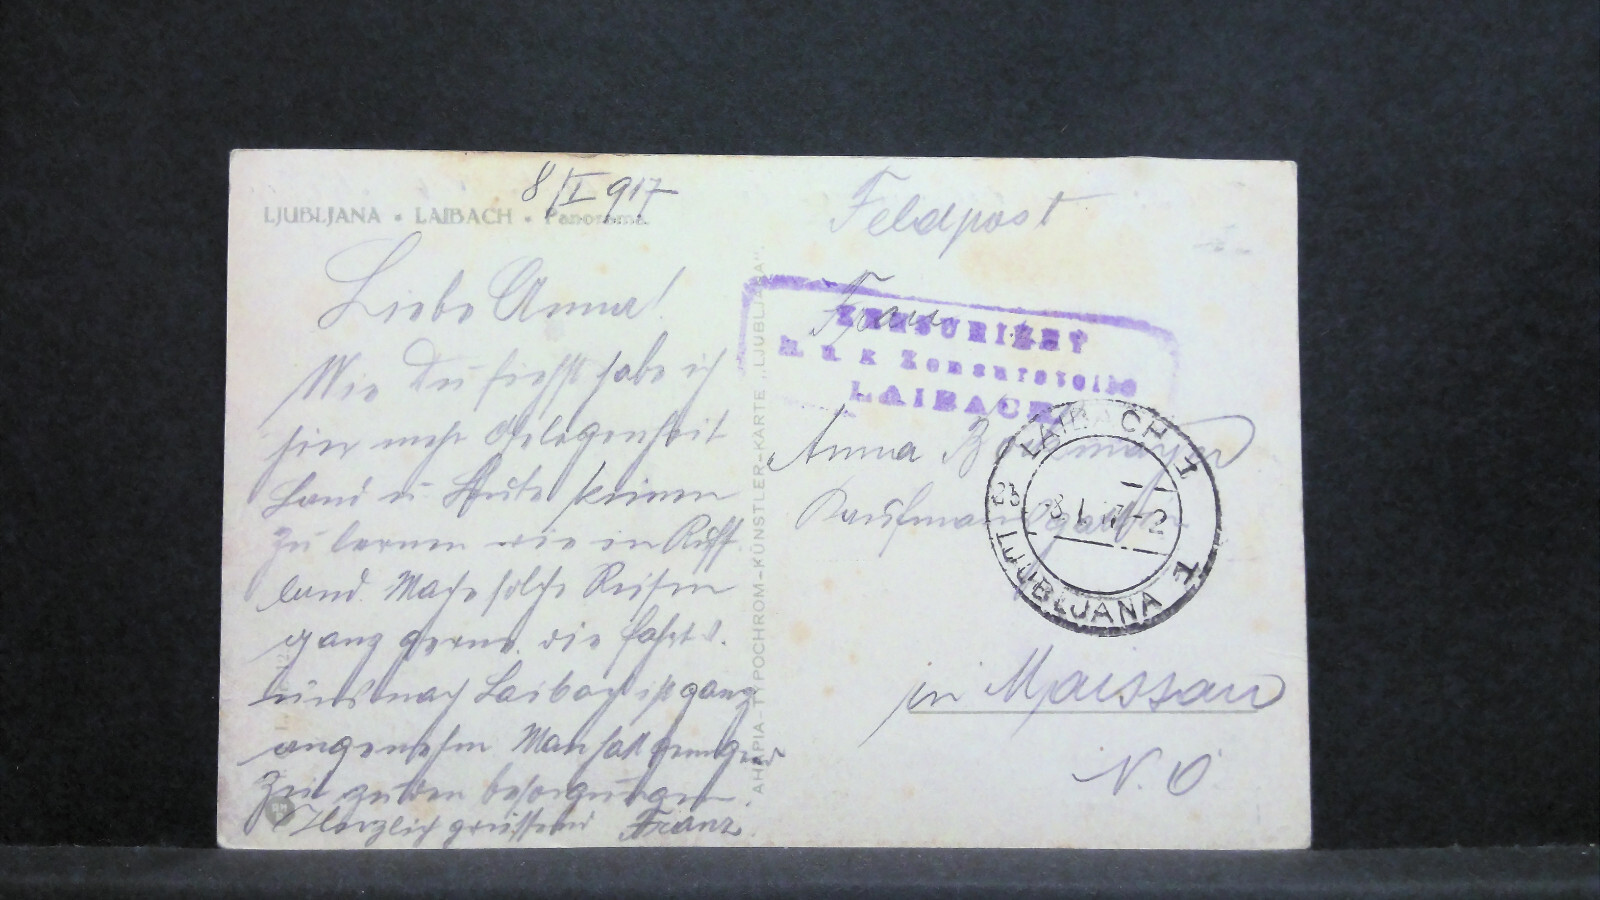 8/I 917
LJUBLJANA • LAIBACH • Panorama
Liebe Anna!
Wie Du siehst habe ich
hier mehr Gelegenheit
Land u. Leute kennen
zu lernen wie in Ruß
land. Mache solche Reisen
ganz gerne. die Fahrt
nach Laibach ist ganz
angenehm Man hat genügend
Zeit zu den besorgungen.
Herzlich grüssend Franz
AHAPIA-TYPOCHROM-KÜNSTLER-KARTE „LJUBLJANA".
Feldpost
Frau
ZENSURIERT
K. u. K Zensurstelle
LAIBACH
Anna
LAIBACH 1
8. I. 17-2
LJUBLJANA 1
in Maissau
N. Ö